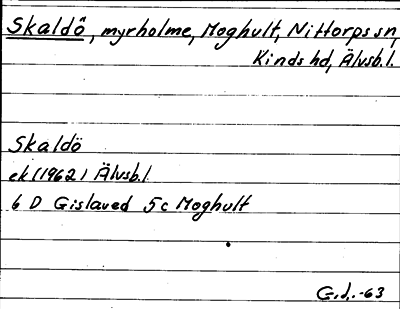 Skaldö, myrholme, Moghult, Nittorps sn,
Kinds hd, Älvsb.l.
Skaldö
ek (1962) Älvsb.l.
6 D Gislaved 5c Moghult
G.J. -63